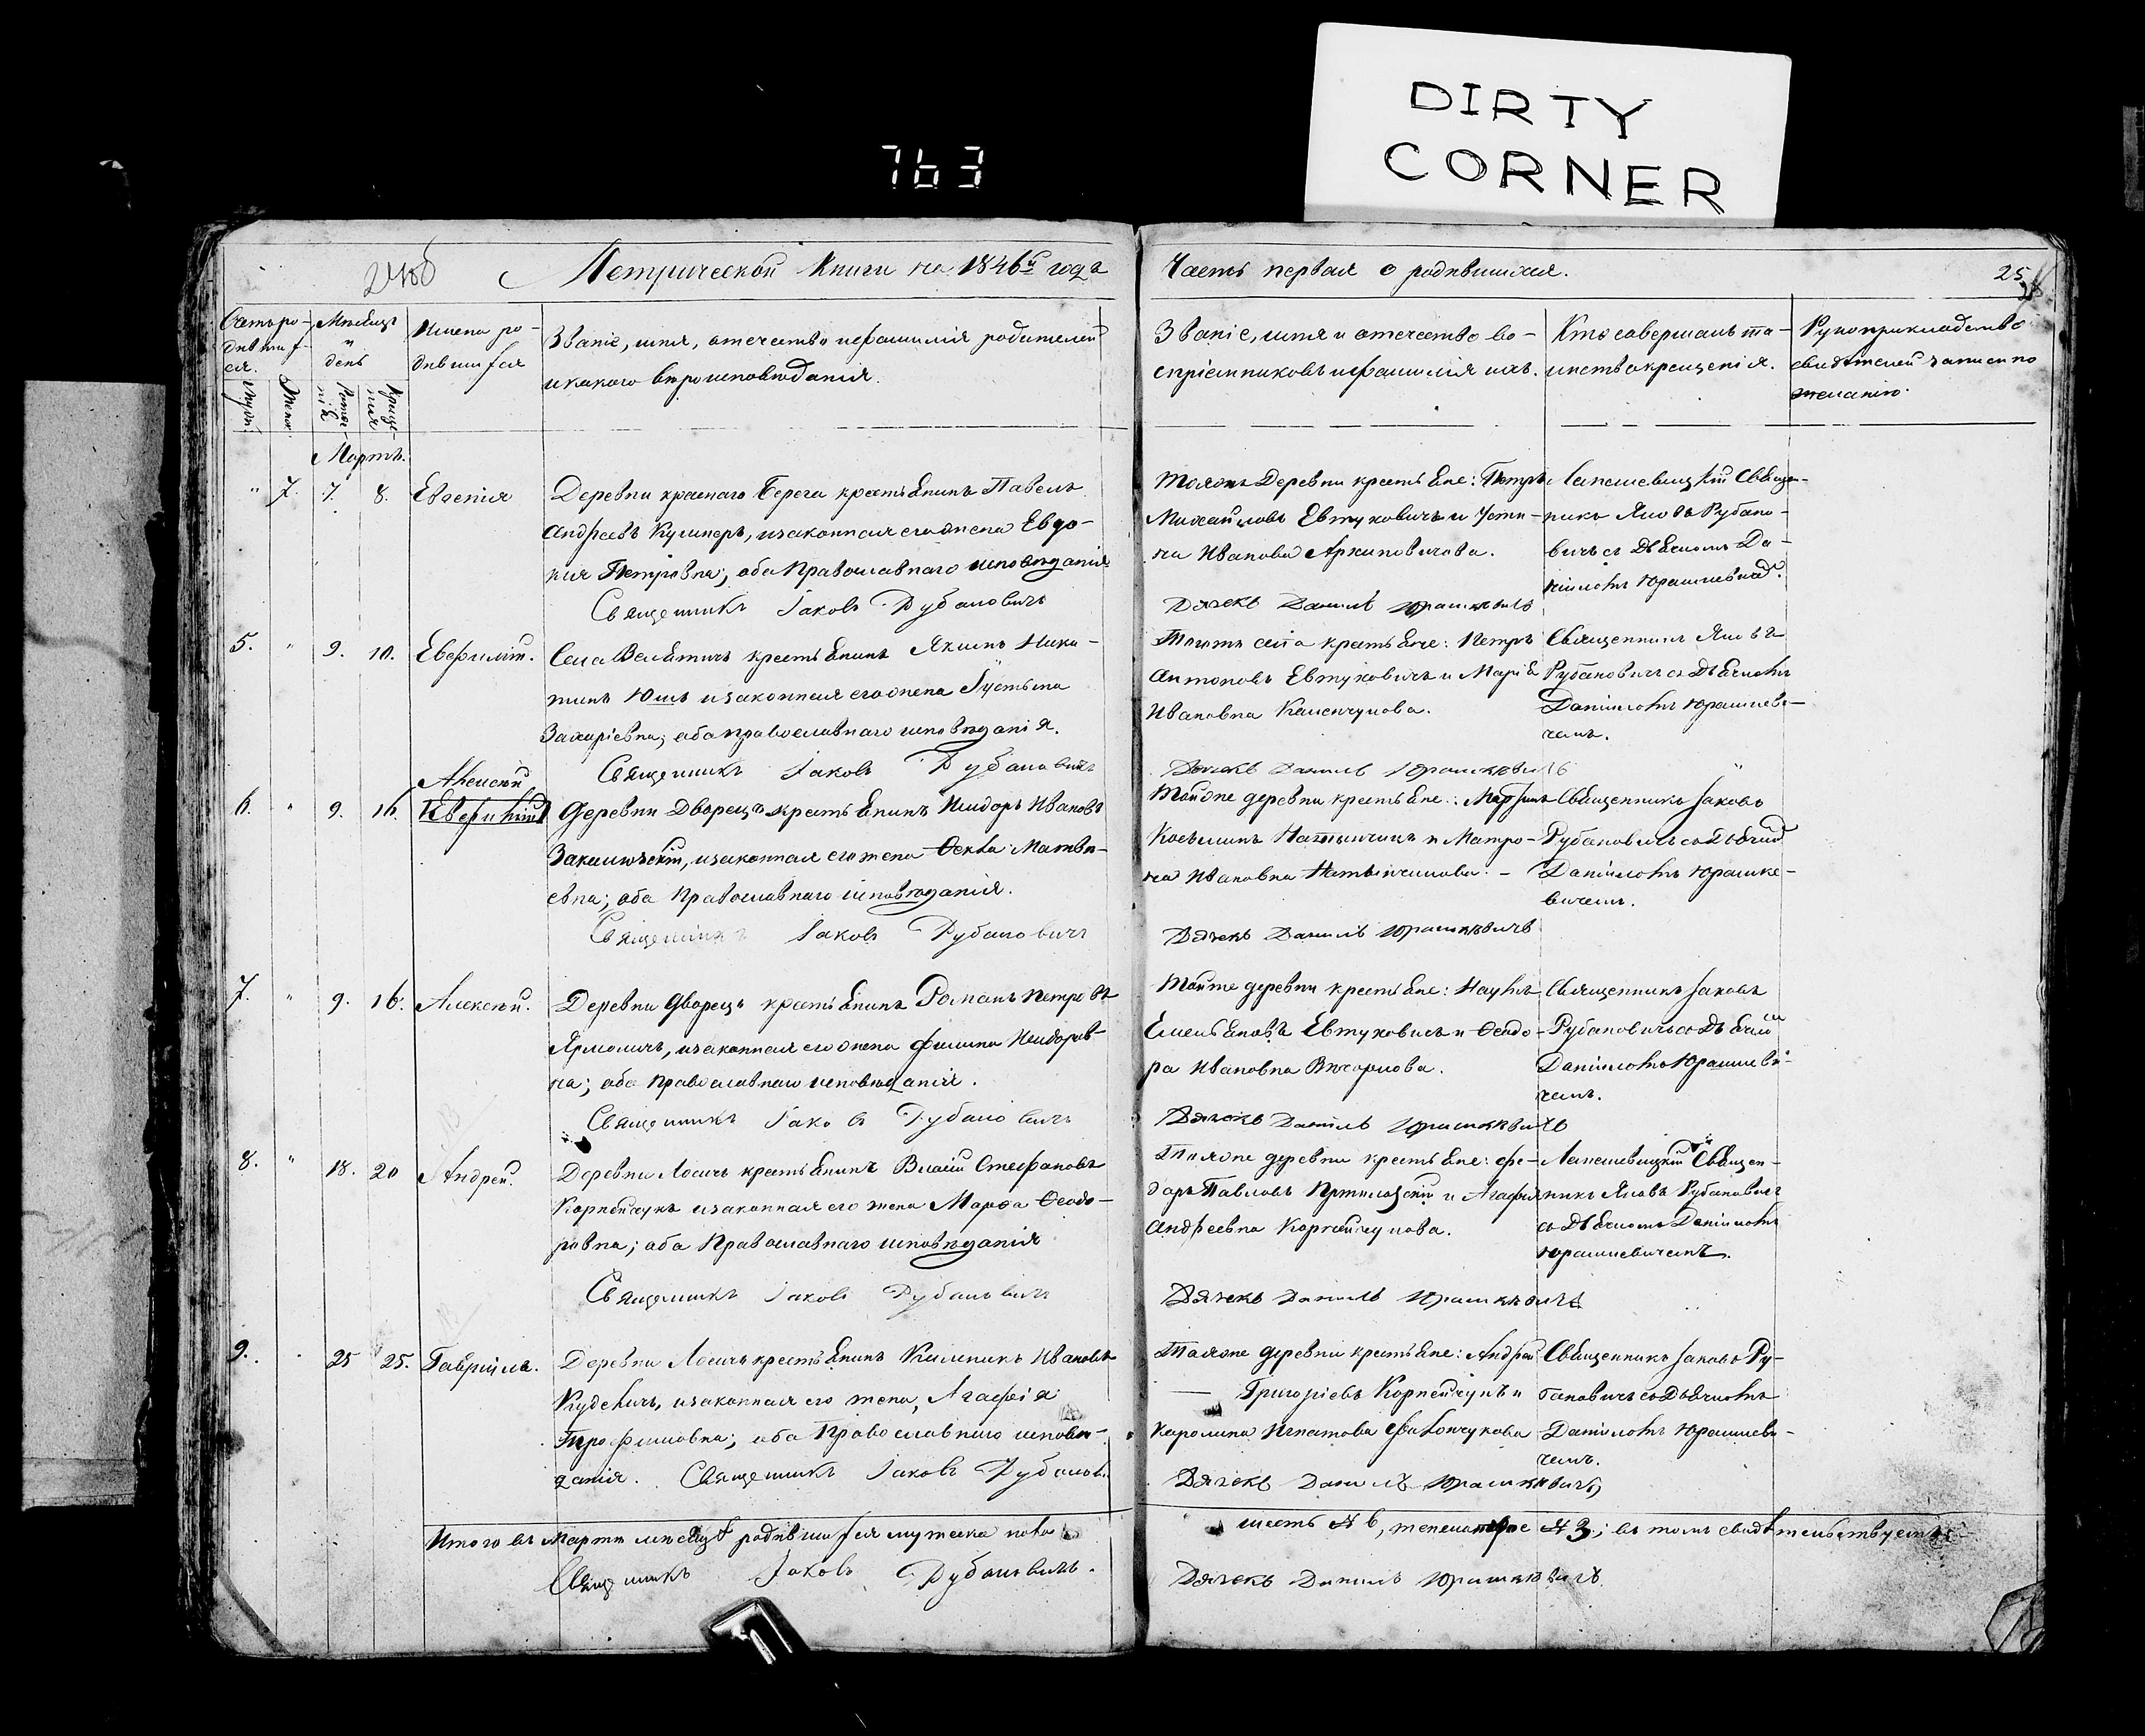 DIRTY
CORNER
763
Метрической Книги на 1846й года
Часть первая о родившихся.
25
Имена ро-
дившихся
Званіе, имя, отечество и фамилія родителей
и какого вѣроисповѣданія.
Званіе, имя и отечество во-
спріемниковъ и фамилія ихъ.
Кто совершалъ та-
инство крещенія.
Рукоприкладство
свидѣтелей записи по
желанію.
Мартъ.
" 7. 7. 8. Евгенія
Деревни краснаго Берега крестьянинъ Павелъ
Андреевъ Кушнеръ, и законная его жена Евдо-
кія Петровна; оба Православнаго исповѣданія
Священникъ Іаковъ Рубановичъ
Тояжъ Деревни крестьяне: Петръ
Михайловъ Евтуховичъ и Усти-
на Иванова Архиповичова.
Дячекъ Даниилъ Юрашкевичъ
Лапешевицкій Священ-
никъ Яковъ Рубано-
вичъ съ Дьячкомъ Да-
ніиломъ
5. " 9. 10. Евфимій.
Села крестьянинъ Якимъ Ники-
тинъ и законная его жена Іустына
Захаріевна; оба православнаго исповѣданія.
Священникъ Іаковъ Рубановичъ
Тогожъ села крестьяне: Петръ
Антоновъ Евтуховичъ и Марія
Ивановна
Дячекъ Даниилъ Юрашкевичъ
Священникъ Яковъ
Рубановичъ съ Дьячкомъ
Даніиломъ Юрашкеви-
чемъ.
Алексѣй
6. " 9. 16.
Деревни Дворецъ крестьянинъ Исидоръ Ивановъ
Закалюжскій, и законная его жена Ѳекла Матви-
евна; оба Православнаго исповѣданія.
Священникъ Іаковъ Рубановичъ
Тойже деревни крестьяне: Мартинъ
и Матро-
на Ивановна
Дячекъ Даниилъ Юрашкевичъ
Священникъ Іаковъ
Рубановичъ съ Дьячкомъ
Даніиломъ Юрашке-
вичемъ.
7. " 9. 16. Алексѣй.
Деревни Дворецъ крестьянинъ Романъ Петровъ
Ярмоличъ, и законная его жена Фимина Исидоров-
на; оба православнаго исповѣданія.
Священникъ Іаковъ Рубановичъ
Тойже деревни крестьяне: Наумъ
Емельяновъ Евтуховичъ и Ѳеодо-
ра Ивановна
Дячекъ Даниилъ Юрашкевичъ
Священникъ Іаковъ
Рубановичъ съ Дьячкомъ
Даніиломъ Юрашкеви-
чемъ.
8. " 18. 20 Андрей.
Деревни Лосичъ крестьянинъ Власій Стефановъ
Корнейчукъ и законная его жена Марфа Ѳеодо-
ровна; оба Православнаго исповѣданія
Священникъ Іаковъ Рубановичъ
Тояже деревни крестьяне: Фе-
доръ Павловъ и Агафія
Андреевна Корнейчукова.
Дячекъ Даниилъ Юрашкевичъ
Лапешевицкій Священ-
никъ Яковъ Рубановичъ
съ Дьячкомъ Даніиломъ
Юрашкевичемъ.
9. " 25 25. Гавріилъ.
Деревни Лосичъ крестьянинъ Ивановъ
и законная его жена, Агафія
Трофимовна; оба Православнаго исповѣ-
данія. Священникъ Іаковъ Рубанович
Тояже деревни крестьяне: Андрей
Григоріевъ Корнейчукъ и
Каролина Игнатова
Дячекъ Даниилъ Юрашкевичъ
Священникъ Іаковъ Ру-
бановичъ съ Дьячкомъ
Даніиломъ Юрашкеви-
чемъ.
Итого въ Мартѣ мѣсяцѣ родившихся мужеска пола
шесть № 6, женска три № 3; въ томъ свидѣтельствуемъ
Священникъ Іаковъ Рубановичъ.
Дячекъ Даниилъ Юрашкевичъ.